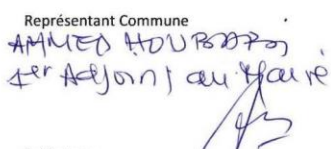 Représentant Commune
AHMED
1er Adjoint au Maire